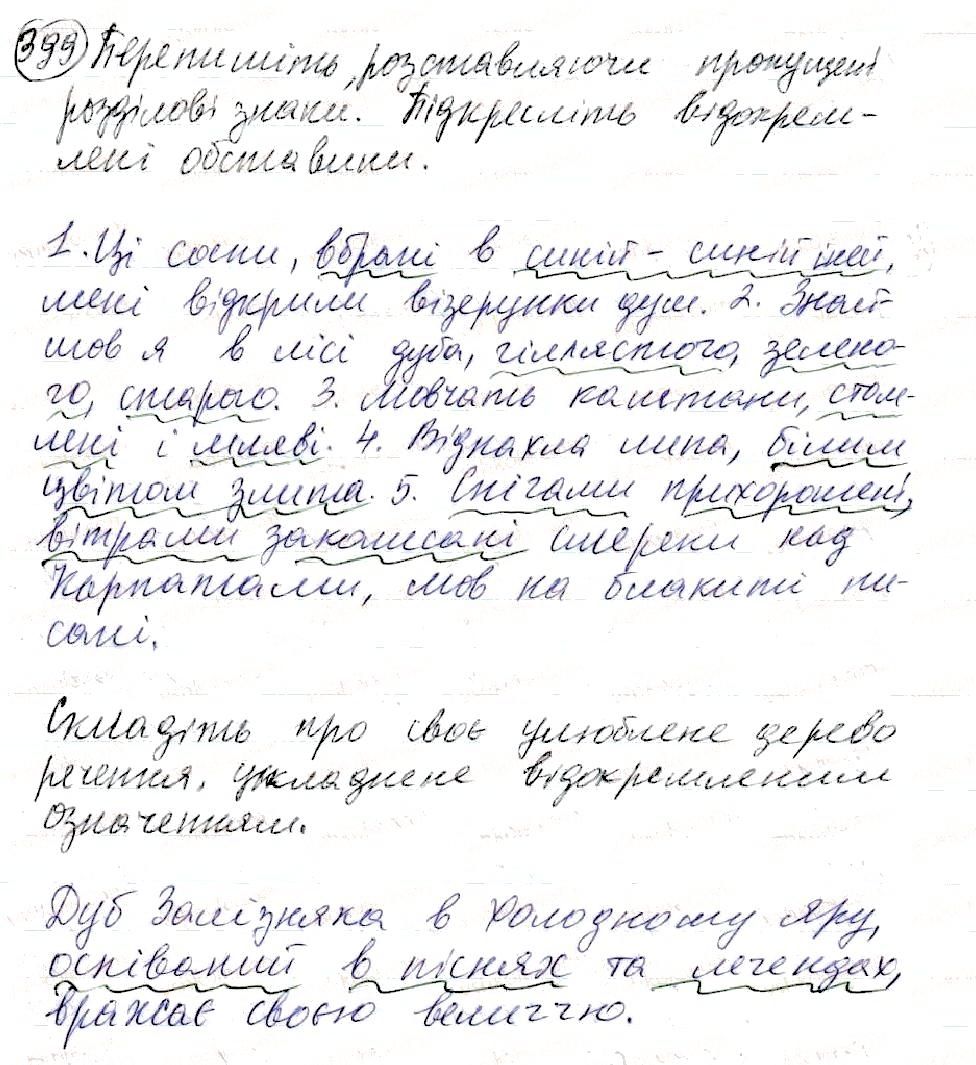 399 Перепишіть, розставляючи пропущені
розділові знаки. Підкресліть відокрем-
лені обставини.
1. Ці сосни, вбрані в синій-синій іней,
мені відкрили візерунки дум. 2. Знай-
шов я в лісі дуба, гіллястого, зелено-
го, старого. 3. Мовчать каштани, стом-
лені і мляві. 4. Відпахла липа, білим
цвітом злита. 5. Снігами прихорошені,
вітрами закошлані смереки над
Карпатами, мов на блакиті пи-
сані.
Складіть про своє улюблене дерево
речення, ускладнене відокремленим
означенням.
Дуб Залізняка в Холодному Яру,
оспіваний в піснях та легендах,
вражає своєю величчю.